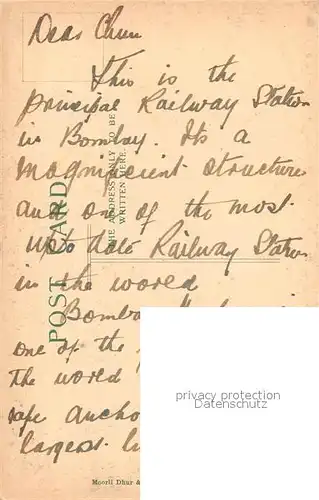 Dear Chum
This is the
principal Railway Station
in Bombay. Its a
magnificient structure
and one of the most
up to date Railway Station
in the world
Bombay
one of the
the world
safe ancho
largest
POST CARD
THE ADDRESS ONLY TO BE
WRITTEN HERE.
privacy protection
Datenschutz
Moorli Dhur &